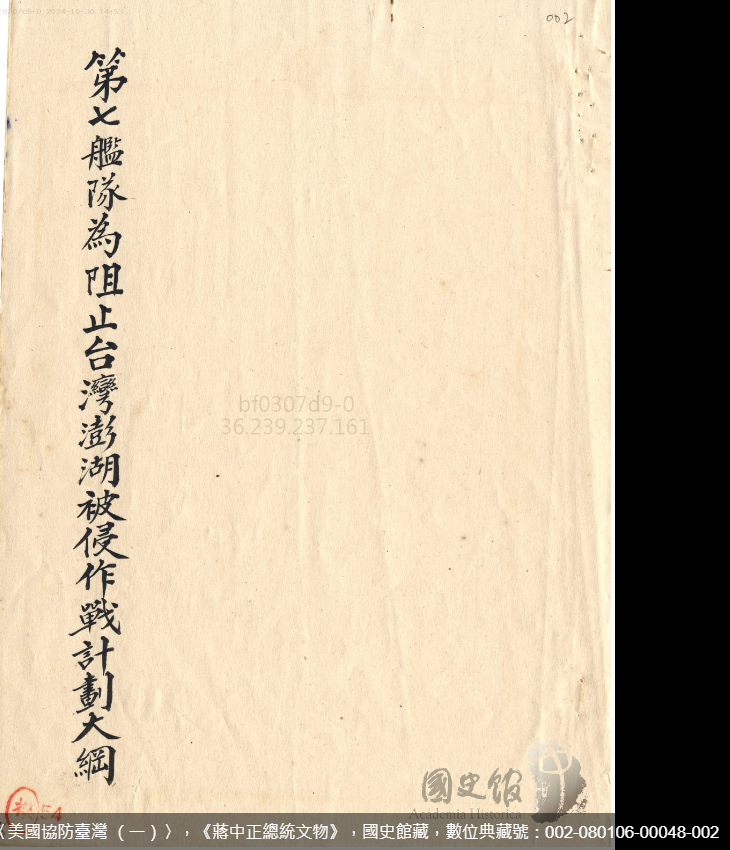 002
第七艦隊為阻止台灣澎湖被侵作戰計劃大綱
bf0307d9-0
36.239.237.161
國史館
Academia Historica
54
〈美國協防臺灣（一）〉，《蔣中正總統文物》，國史館藏，數位典藏號：002-080106-00048-002